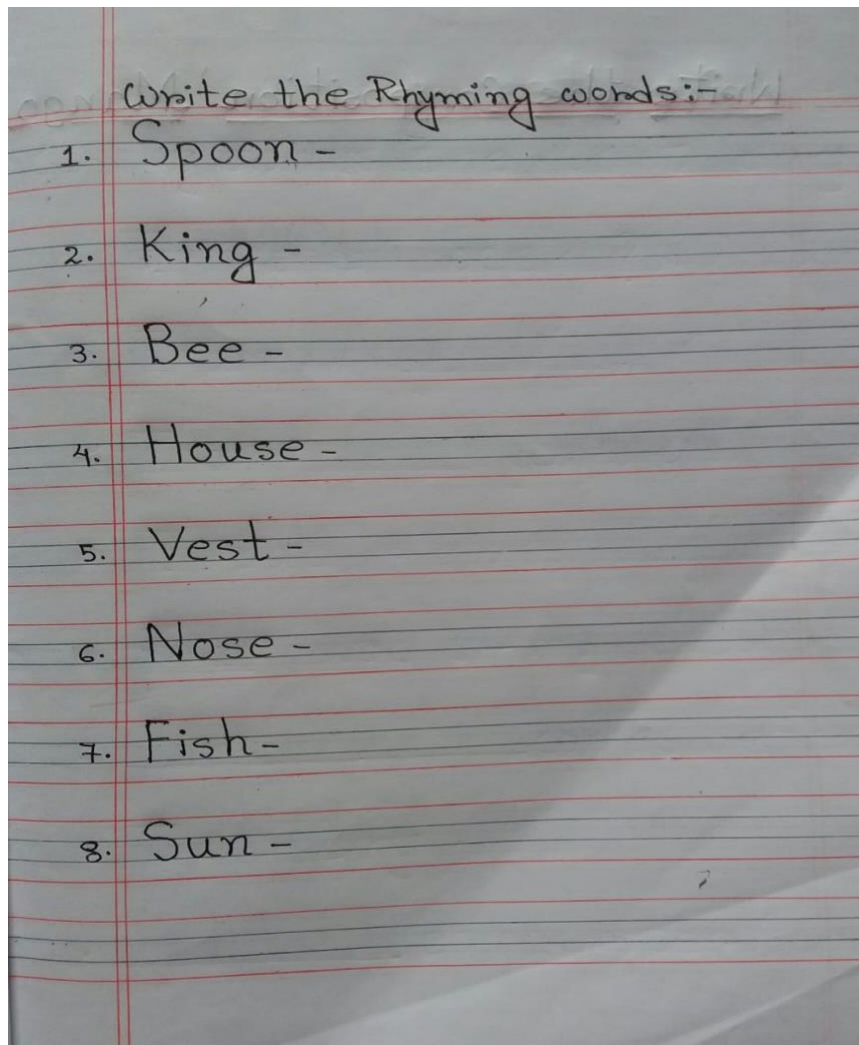 Write the Rhyming words:-
1. Spoon -
2. King -
3. Bee -
4. House -
5. Vest -
6. Nose -
7. Fish -
8. Sun -